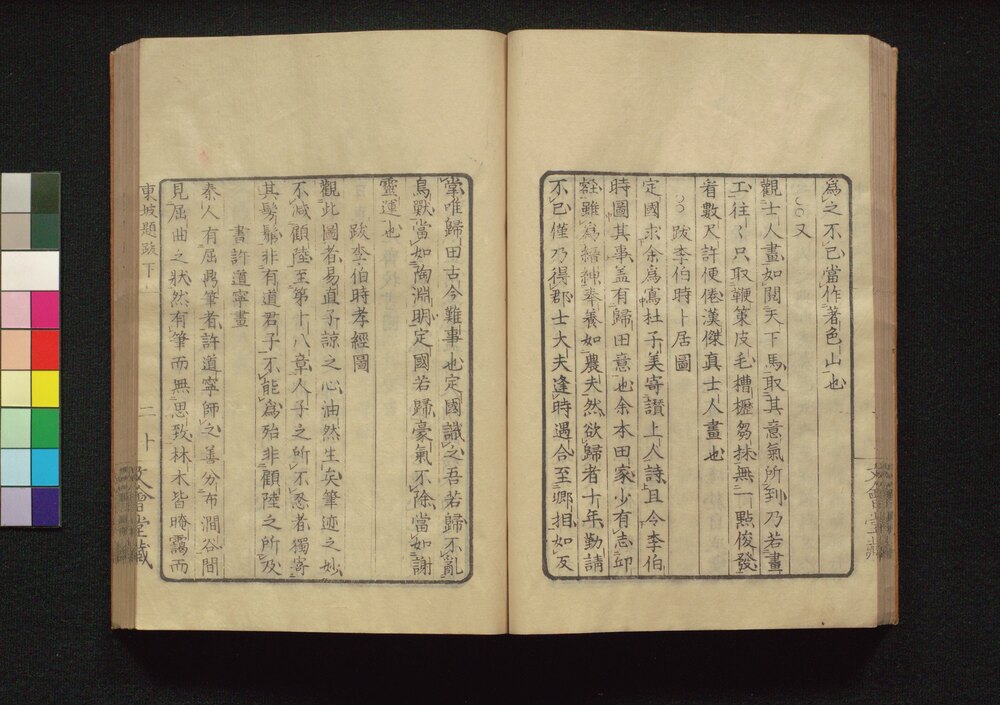 爲之不已當作著色山也
又
觀士人畫如閱天下馬取其意氣所到乃若畫
工往〻只取鞭策皮毛槽櫪芻抹無一點俊發
看數尺許便倦漢傑真士人畫也
跋李伯時卜居圖
定國求余爲寫杜子美寄讃上人詩且令李伯
時圖其事盖有歸田意也余本田家少有志丘
壑雖爲搢紳奉養如農夫然欲歸者十年勤請
不已僅乃得郡士大夫逢時遇合至卿相如反
掌唯歸田古今難事也定國識之吾若歸不亂
鳥獸當如陶淵明定國若歸豪氣不除當如謝
靈運也
跋李伯時孝經圖
觀此圖者易直子諒之心油然生矣筆迹之妙
不減顧陸至第十八章人子之所不忍者獨寄
其髣髴非有道君子不能爲殆非顧陸之所及
書許道寧畫
泰人有屈鼎筆者許道寧師之善分布澗谷間
見屈曲之狀然有筆而無思致林木皆晻靄而
東坡題跋下
二十
文會堂藏